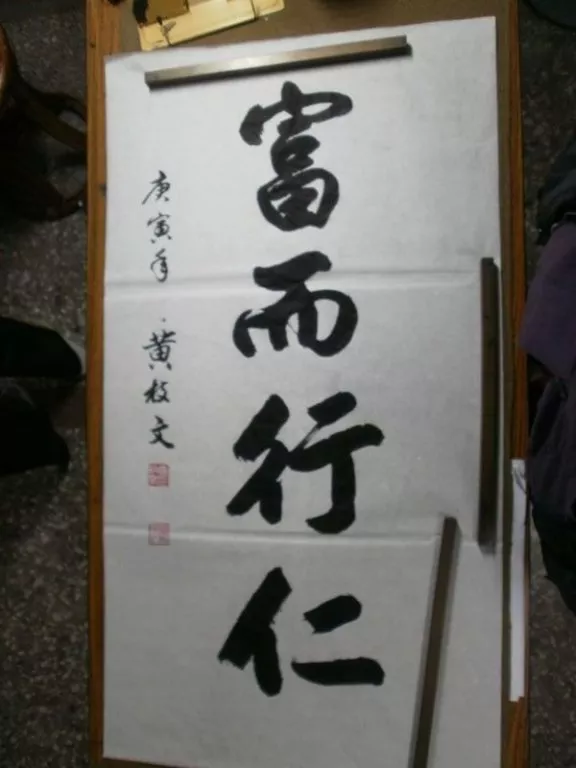 富而行仁
庚寅年 黄枝文